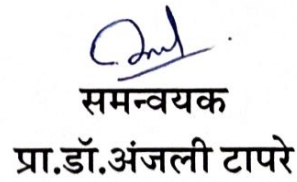 समन्वयक
प्रा.डॉ.अंजली टापरे